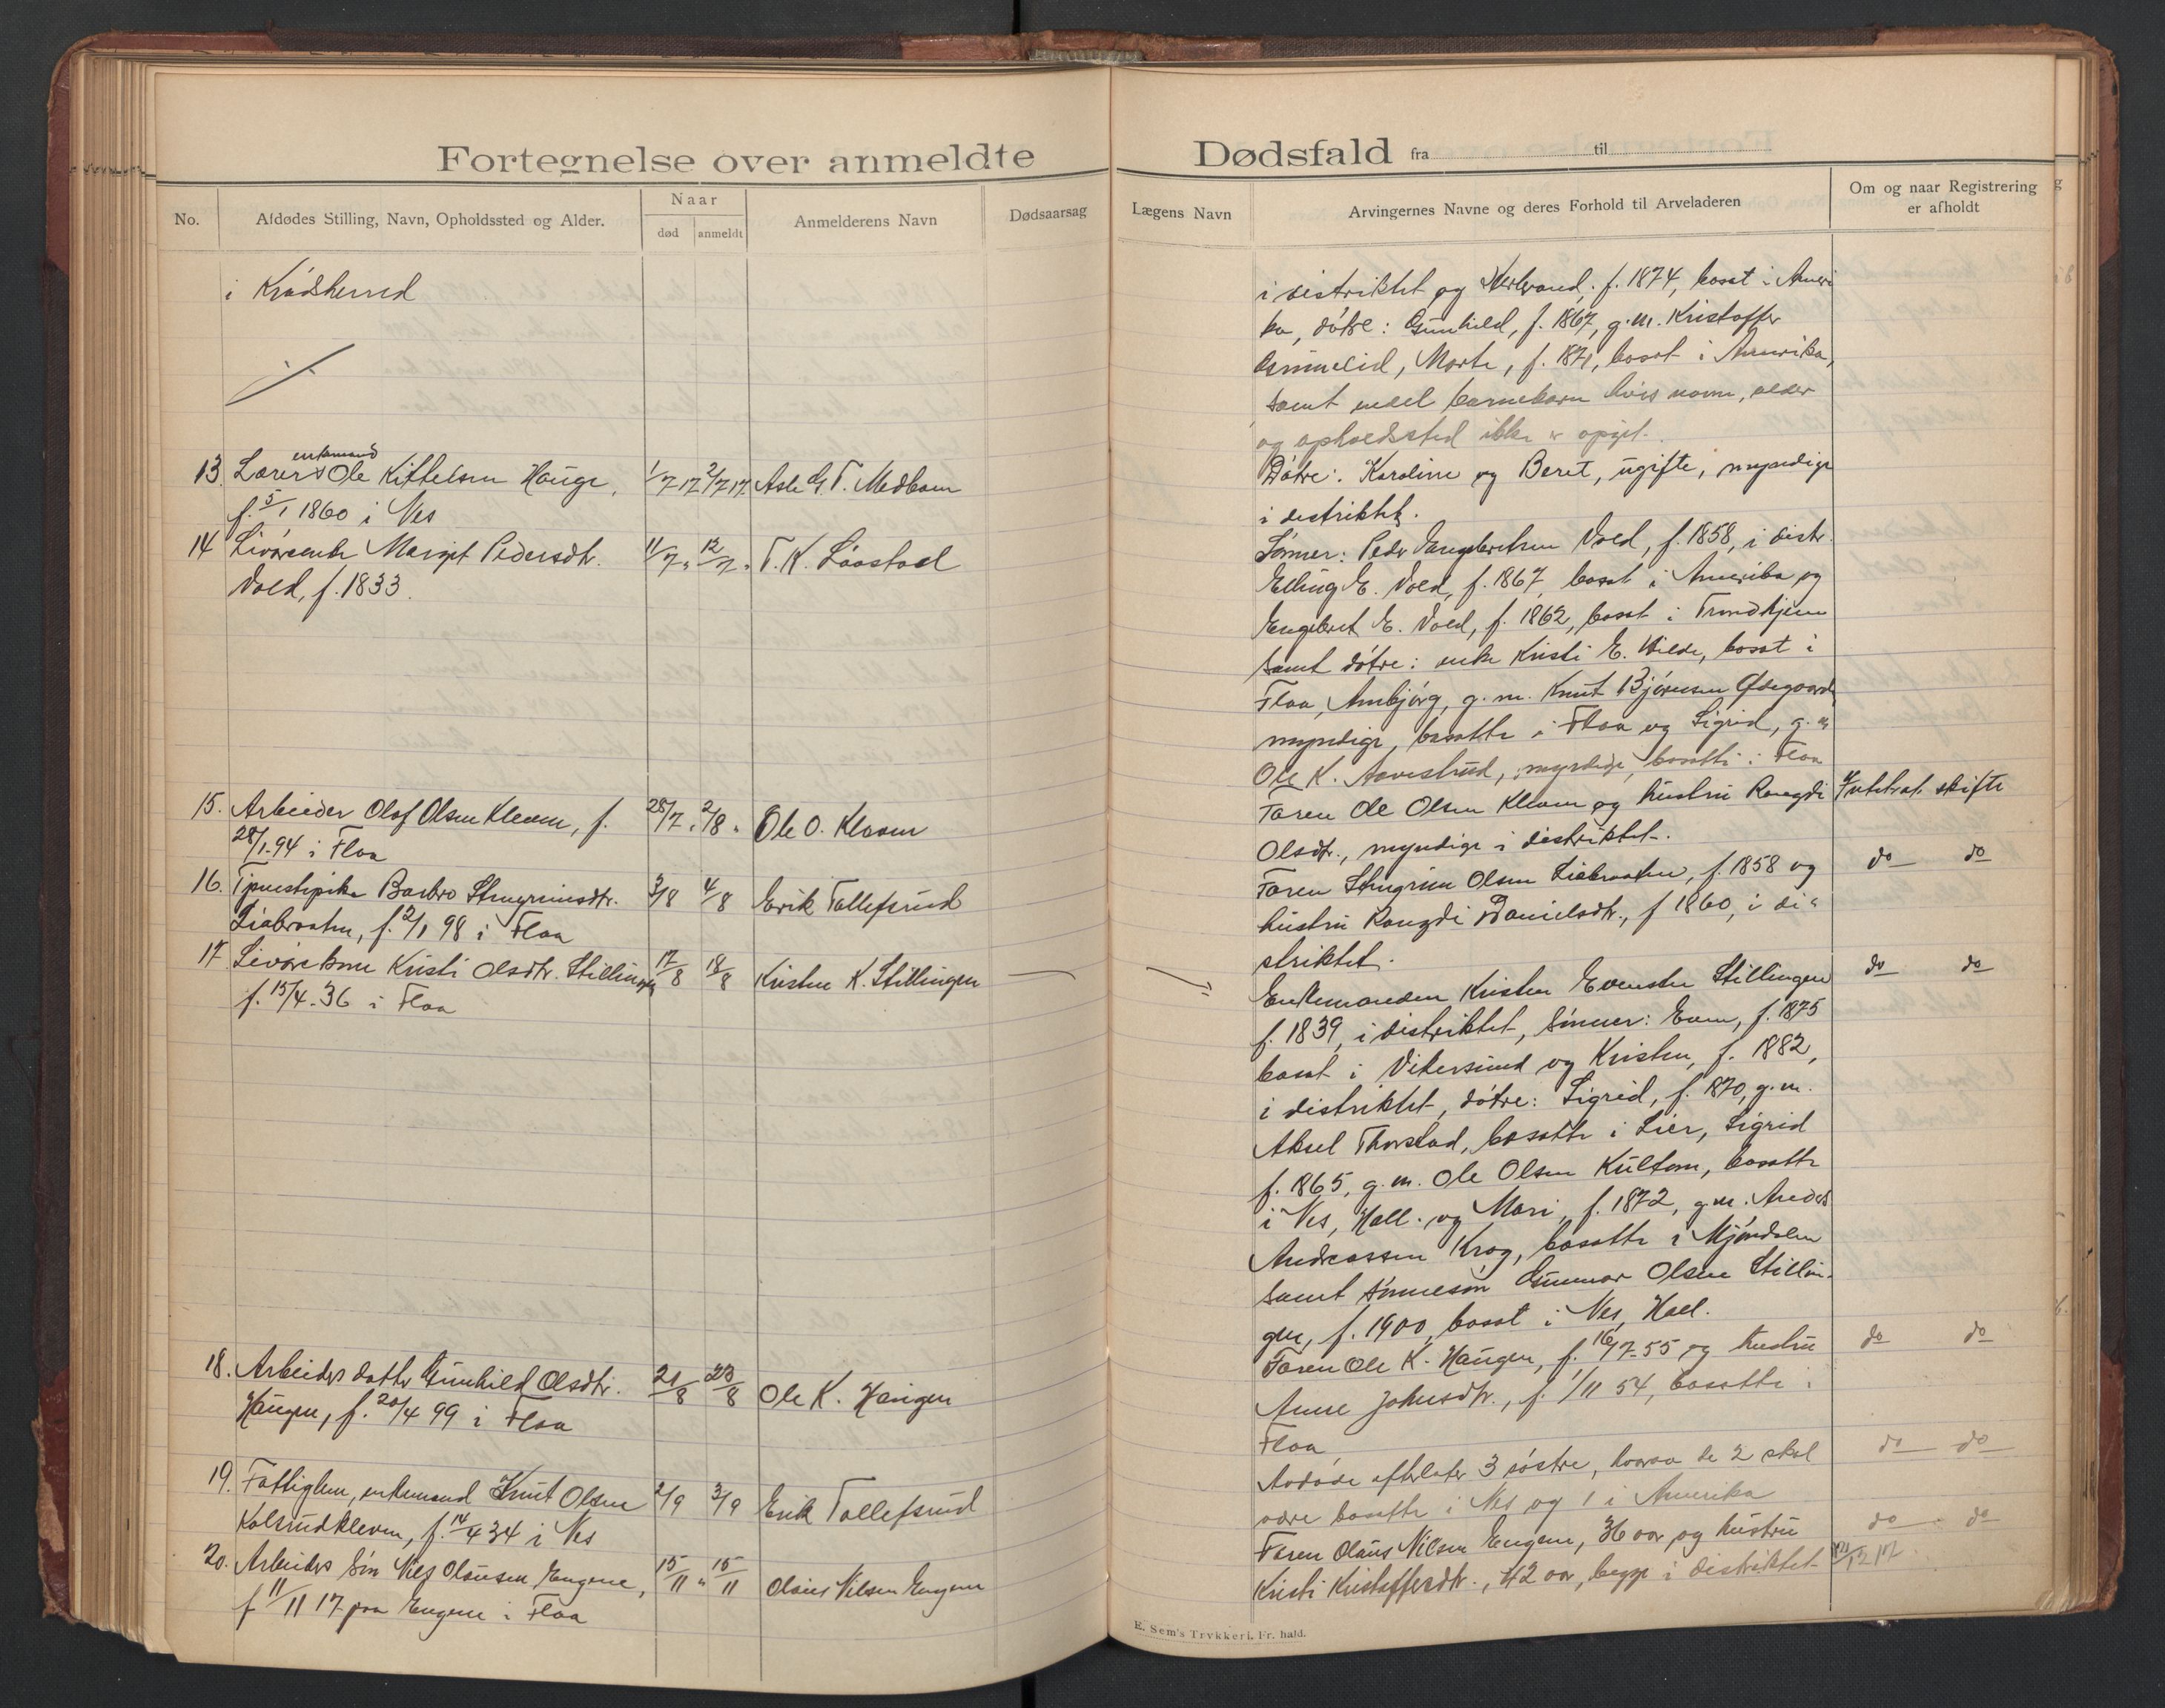 Fortegnelse over anmeldte
No.
Afdødes Stilling, Navn, Opholdssted og Alder.
Naar
død
anmeldt
Anmelderens Navn
Dødsaarsag
i Krødsherred
enkemand
13. Lærer Ole Kittelsen Hauge, 1/7 17 2/7 17 Asle G. T. Medbøen
f. 5/1 1860 i Nes
14 Livøreenke Margit Pedersdtr. 11/7 " 12/7 " T. K. Løostad
Vold, f. 1833.
15. Arbeider Olof Olsen Kleven, f. 28/7 " 2/8 " Ole O. Kleven
28/1-94 i Flaa
16. Tjenestepike Barbro Stengrimsdtr. 3/8 4/8 Erik Tollefsrud
Liabraaten, f. 2/1 98 i Flaa
17 Livørekone Kristi Olsdtr. Stillingen 17/8 18/8 Kristen K. Stillingen
f. 15/4-36 i Flaa
18. Arbeiders datter Gunhild Olsdtr. 21/8 23/8 Ole K. Haugen
Haugen, f. 20/4 99 i Flaa
19. Fattiglem, enkemand Knut Olsen 2/9 3/9 Erik Tollefsrud
Kolsrudkleven, f. 14/4 34 i Nes
20. Arbeiders søn Nels Olausen Engene, 15/11 " 15/11 Olaus Nilsen Engene
f 11/11 17 paa Engene i Flaa
Dødsfald fra til
Lægens Navn
Arvingernes Navne og deres Forhold til Arveladeren
Om og naar Registrering
er afholdt
i distriktet og Herbrand, f. 1874, bosat i Ameri
ka, døtre: Gunhild, f. 1867, g. m. Kristoffer
Marte, f. 1871, bosat i Amerika,
samt endel barnebarn hvis navn, alder
og opholdssted ikke er opgit.
Døtre: Karoline og Beret, ugifte, myndige
i distriktet.
Sønner: Peder Engebretsen Vold, f. 1858, i distr.
Elling E. Vold, f. 1867, bosat i Amerika og
Engebret E. Vold, f. 1862, bosat i Trondhjem
samt døtre: enke Kristi E. Vilde, bosat i
Flaa, Anbjørg, g. m. Knut Bjørnsen Ødegaard,
myndige, bosatte i Flaa og Sigrid, g. m
Ole K. Aavestrud, myndige, bosatte i Flaa
Faren Ole Olsen Kleven og hustru Rangdi
Olsdtr., myndige i distriktet.
skifte
Faren Stengrim Olsen Liabraaten, f. 1858 og do do
hustru Rangdi Danielsdtr., f 1860, i di-
striktet.
Enkemanden Kristen Evensen Stillingen do do
f. 1839, i distriktet, sønner: Even, f. 1875
bosat i Vikersund og Kristen, f. 1882,
i distriktet, døtre: Sigrid, f. 1870, g. m.
Aksel Thorstad, bosatte i Lier, Sigrid
f. 1865, g. m. Ole Olsen Kultom, bosatte
i Nes, Hall. og Mari, f. 1872, g. m. Anders
Andreassen Krog, bosatte i Mjøndalen
samt sønnesøn Gunnar Olsen Stillin-
gen, f. 1900, bosat i Nes, Hall.
Faren Ole K. Haugen, f. 16/7-55 og hustru do do
Anne Johnsdtr., f. 1/11 54, bosatte i
Flaa
Avdøde efterlater 3 søstre, hvorav de 2 skal do do
være bosatte i Nes og 1 i Amerika
Faren Olaus Nilsen Engene, 36 aar og hustru do do
Kristi Kristoffersdtr., 42 aar, begge i distriktet
E. Sem's Trykkeri, Fr. hald.